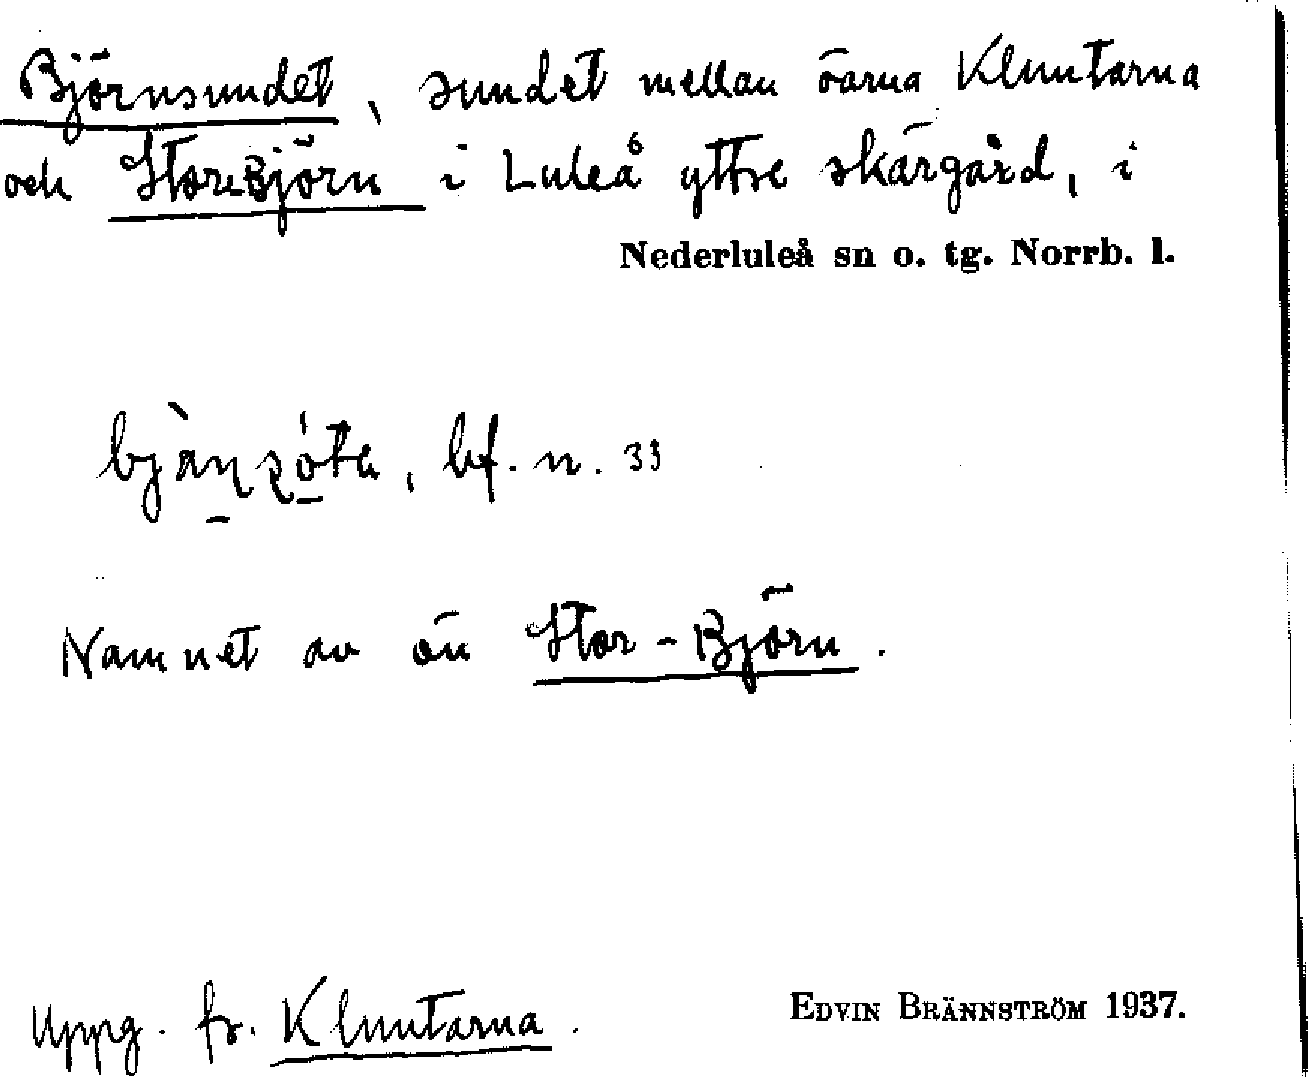 Björnsundet, sundet mellan öarna Kluntarna
och Stor-Björn i Luleå yttre skärgård, i
Nederluleå sn o. tg. Norrb. l.
bf. n. 33
Namnet av ön Stor-Björn.
Uppg. fr. Kluntarna.
EDVIN BRÄNNSTRÖM 1937.